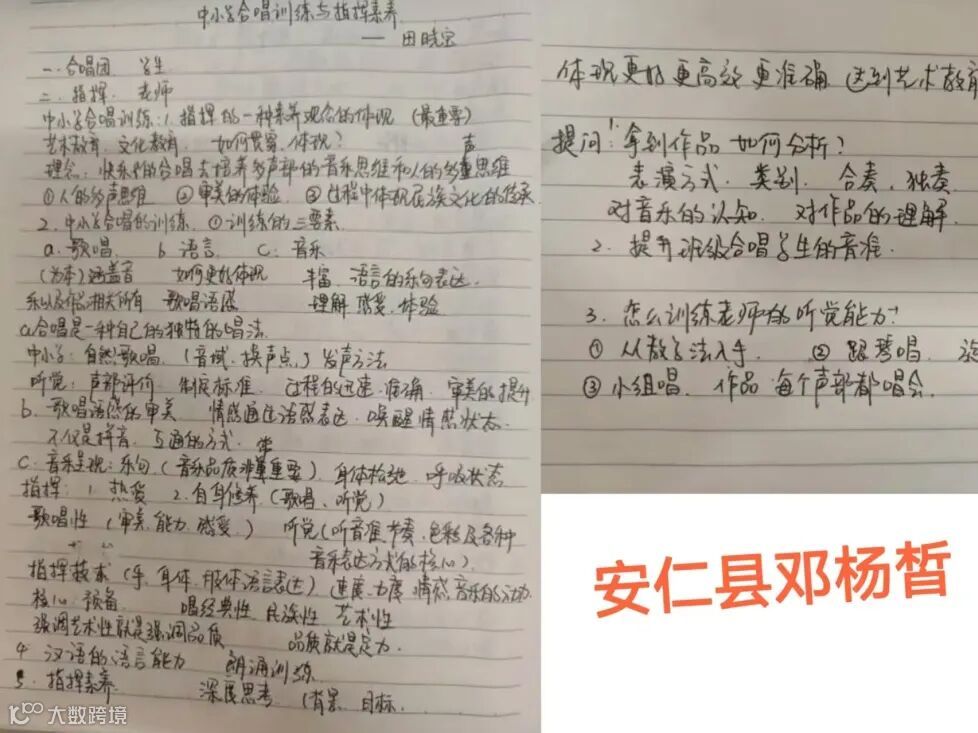 中小学合唱训练与指挥素养
— 田晓宝
一. 合唱团. 学生
二. 指挥. 老师
中小学合唱训练:1. 指挥的一种素养观念的体现 (最重要)
艺术教育. 文化教育. 如何贯穿.体现? 声
理念: 快乐的合唱去培养多声部的音乐思维和人的多重思维
①人的多声思维 ②审美的体验 ③过程中体现民族文化的传承
2. 中小学合唱的训练. ①训练的三要素
a. 歌唱. b 语言. c. 音乐
(为本)涵盖音 如何更好体现 丰富. 语言的乐句表达.
系以及作品相关所有 歌唱语感 理解 感受.体验
a合唱是一种自己的独特的唱法.
中小学: 自然歌唱. (音域.换声点.) 发声方法
听觉: 声部评价 制定标准. 过程的迅速.准确. 审美的提升
b. 歌唱语感的审美 情感通过语感表达. 唤醒情感状态.
不仅是拼音. 互通的方式.
C. 音乐呈现: 乐句. (音乐品质非常重要) 身体松弛. 呼吸状态
指挥: 1. 热爱 2. 自身修养 (歌唱、听觉)
歌唱性 (审美.能力.感受.) 听觉(听音准.节奏.色彩及各种
音乐表达方式的核心).
指挥技术 (手.身体.肢体语言表达) 速度.力度.情感.音乐的动力.
核心: 预备. 唱经典性. 民族性 艺术性
强调艺术性就是强调品质 品质就是定力.
4 汉语的语言能力 朗诵训练
5. 指挥素养 深度思考. (背景. 目标.
体现更好更高效更准确. 达到艺术教育
提问: 1. 拿到作品 如何分析?
表演方式. 类别. 合奏. 独奏.
对音乐的认知. 对作品的理解.
2. 提升班级合唱学生的音准.
3. 怎么训练老师的听觉能力?
① 从教学法入手. ② 跟琴唱.
③ 小组唱. 作品 每个声部都唱会.
安仁县邓杨皙
大数跨境